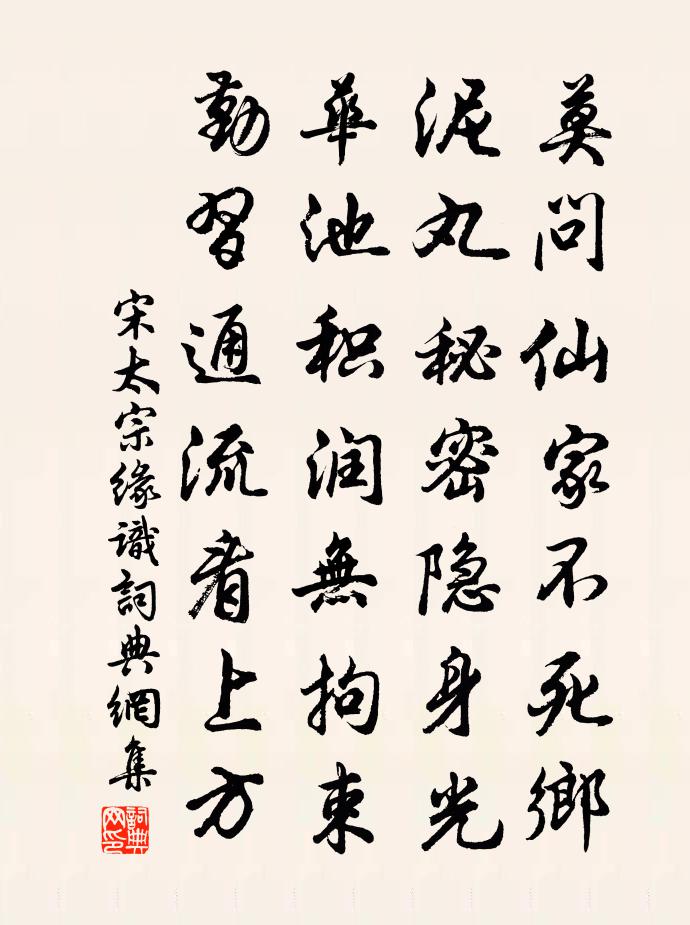 莫问仙家不死鄉
泥丸秘密隐身光
華池积润無拘束
勤習通流看上方
宋太宗缘識詞典網集
詞典网印